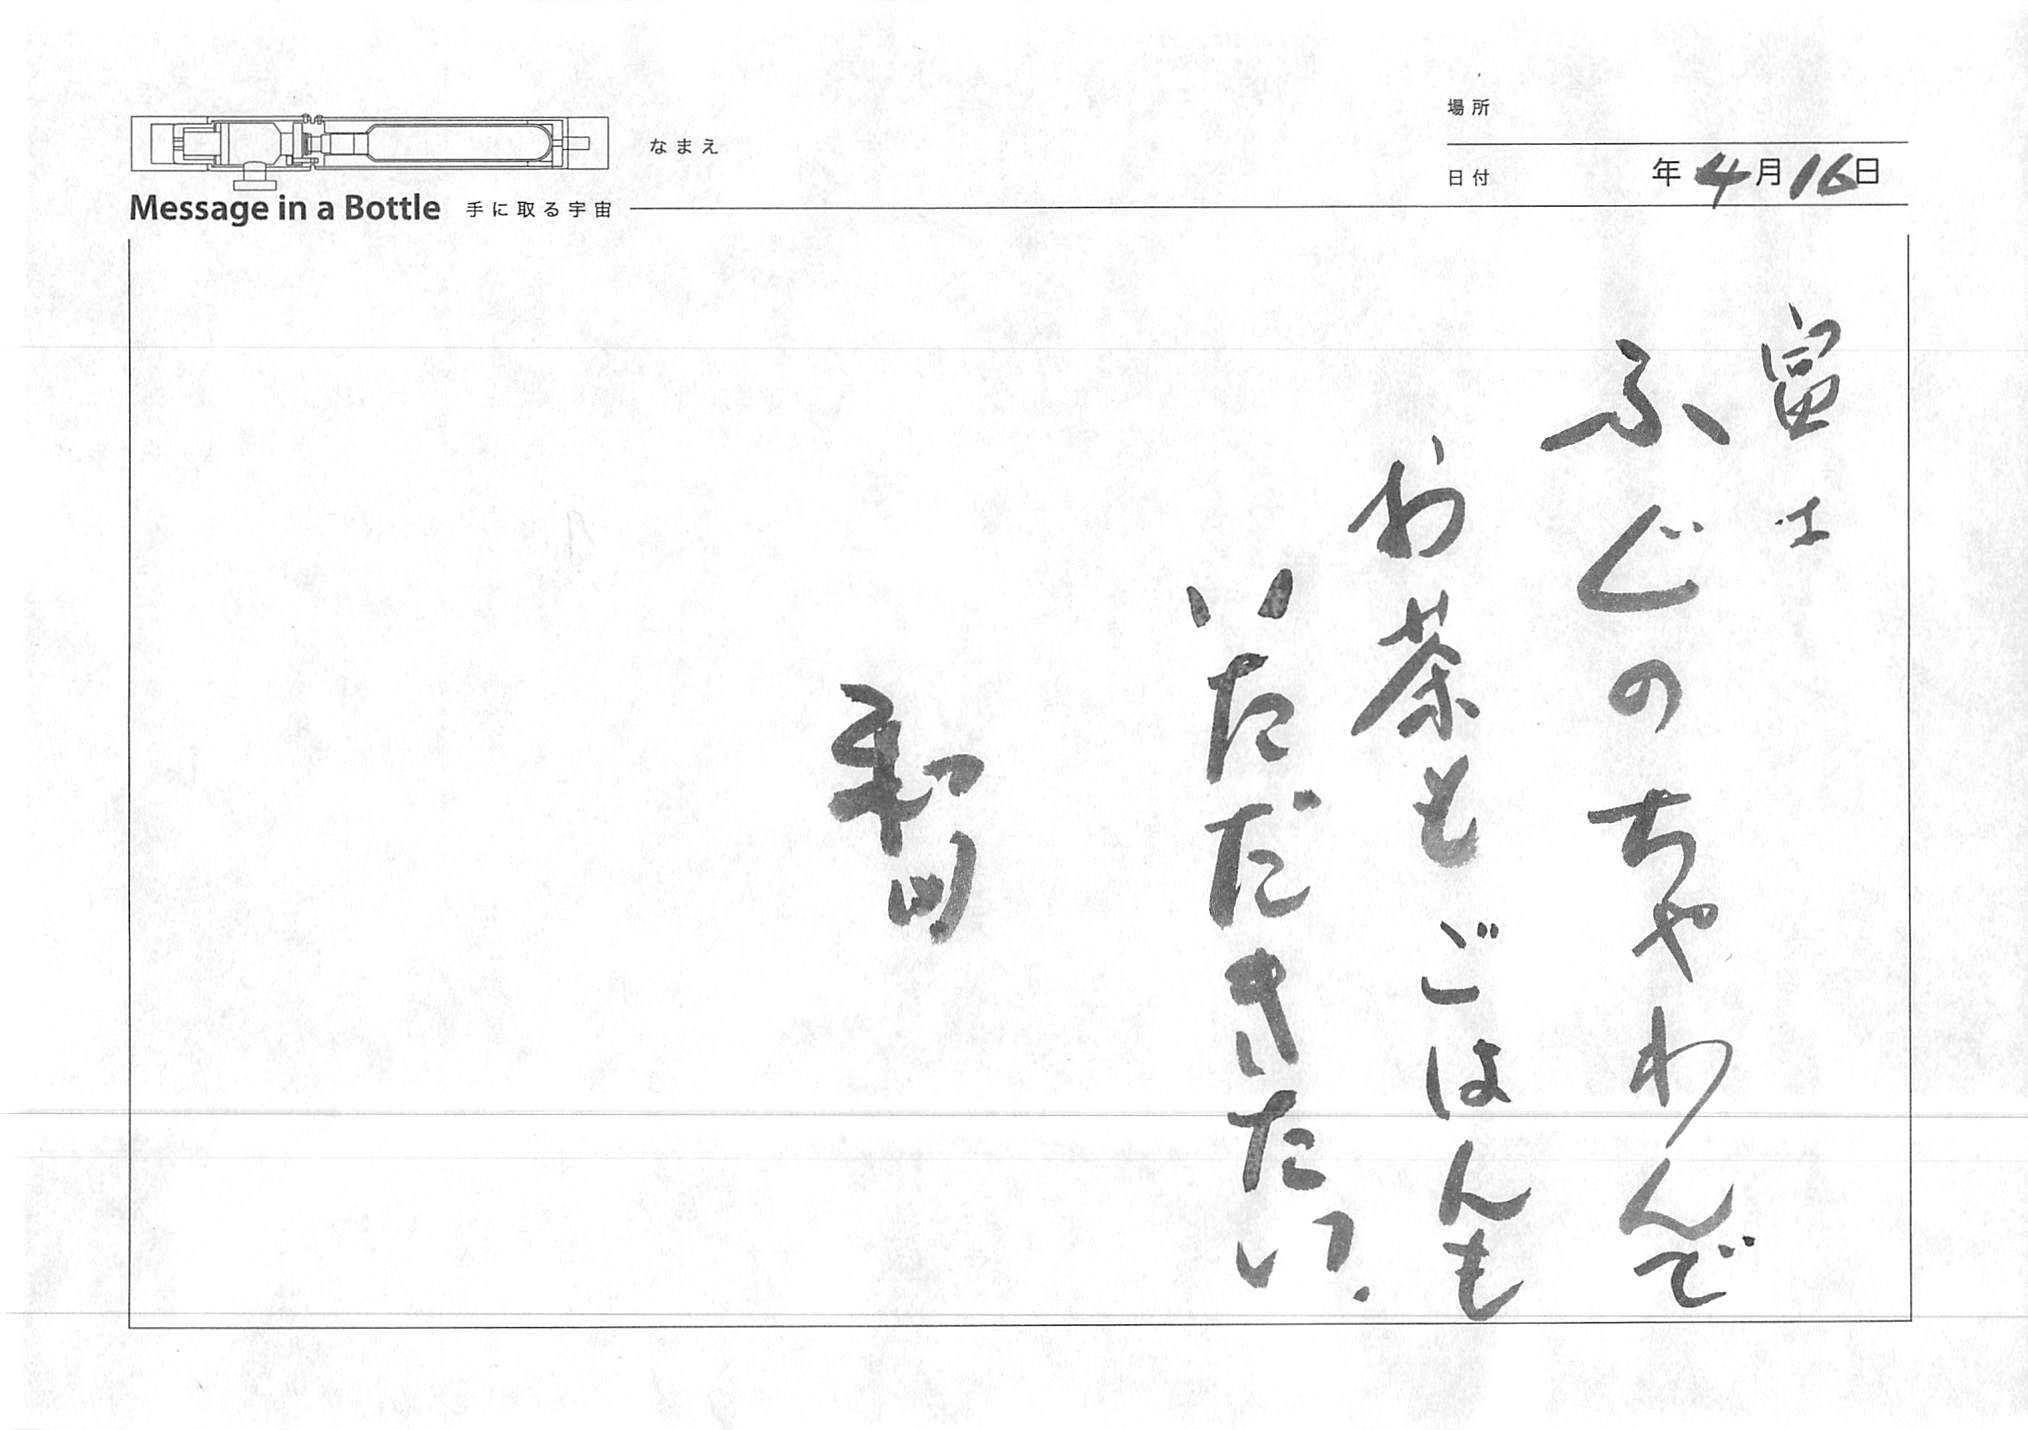 場所
なまえ
日付 年4月16日
Message in a Bottle 手に取る宇宙
富士
ふじのちゃわんで
お茶もごはんも
いただきたい.
和田